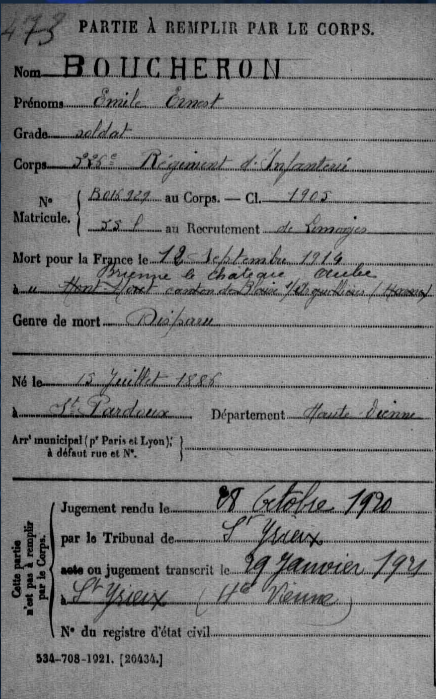 473
PARTIE À REMPLIR PAR LE CORPS.
Nom BOUCHERON
Prénoms Emile Ernest
Grade soldat
Corps 326e Régiment d'Infanterie
N° Matricule. { au Corps. — Cl. 1905
au Recrutement de Limoges
Mort pour la France le 12 Septembre 1914
Brienne le Château Aube
à Mont-Moret canton de
Genre de mort Disparu
Né le 15 Juillet 1885
à St Pardoux Département Haute Vienne
Arrt municipal (pr Paris et Lyon), à défaut rue et N°. }
Cette partie n'est pas à remplir par le Corps.
Jugement rendu le 28 Octobre 1920
par le Tribunal de St Yrieix
acte ou jugement transcrit le 29 Janvier 1921
à St Yrieix (Hte Vienne)
N° du registre d'état civil
534-708-1921. [26434.]